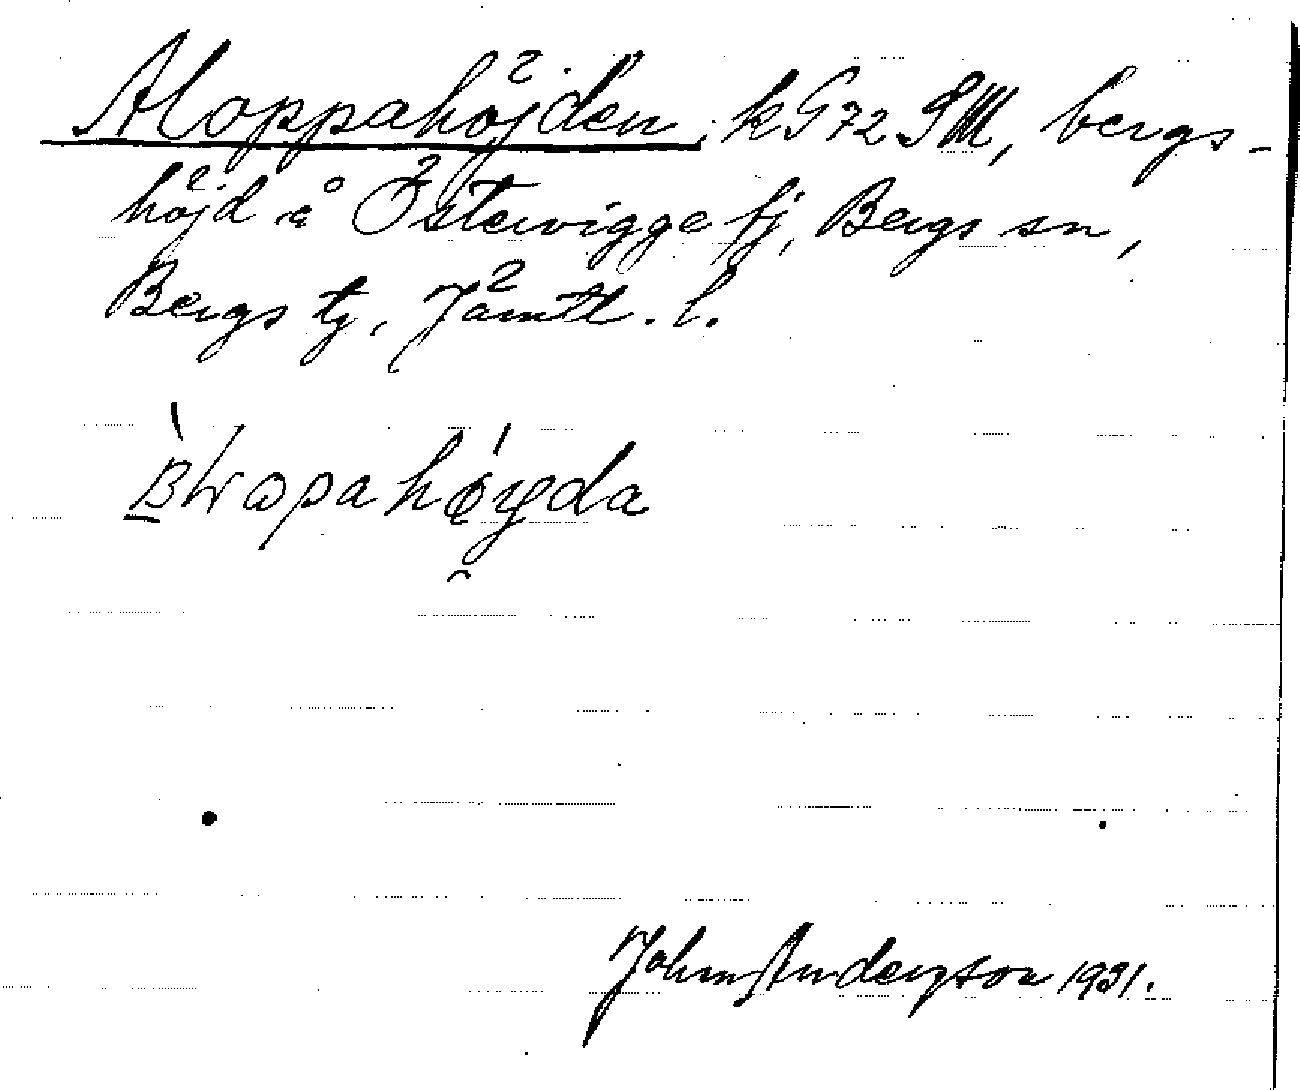 Aloppahöjden, k G 72 SM, bergs-
höjd å Östervigge fj, Bergs sn,
Bergs tg, Jämtl. l.
höyda
John Anderson 1931.